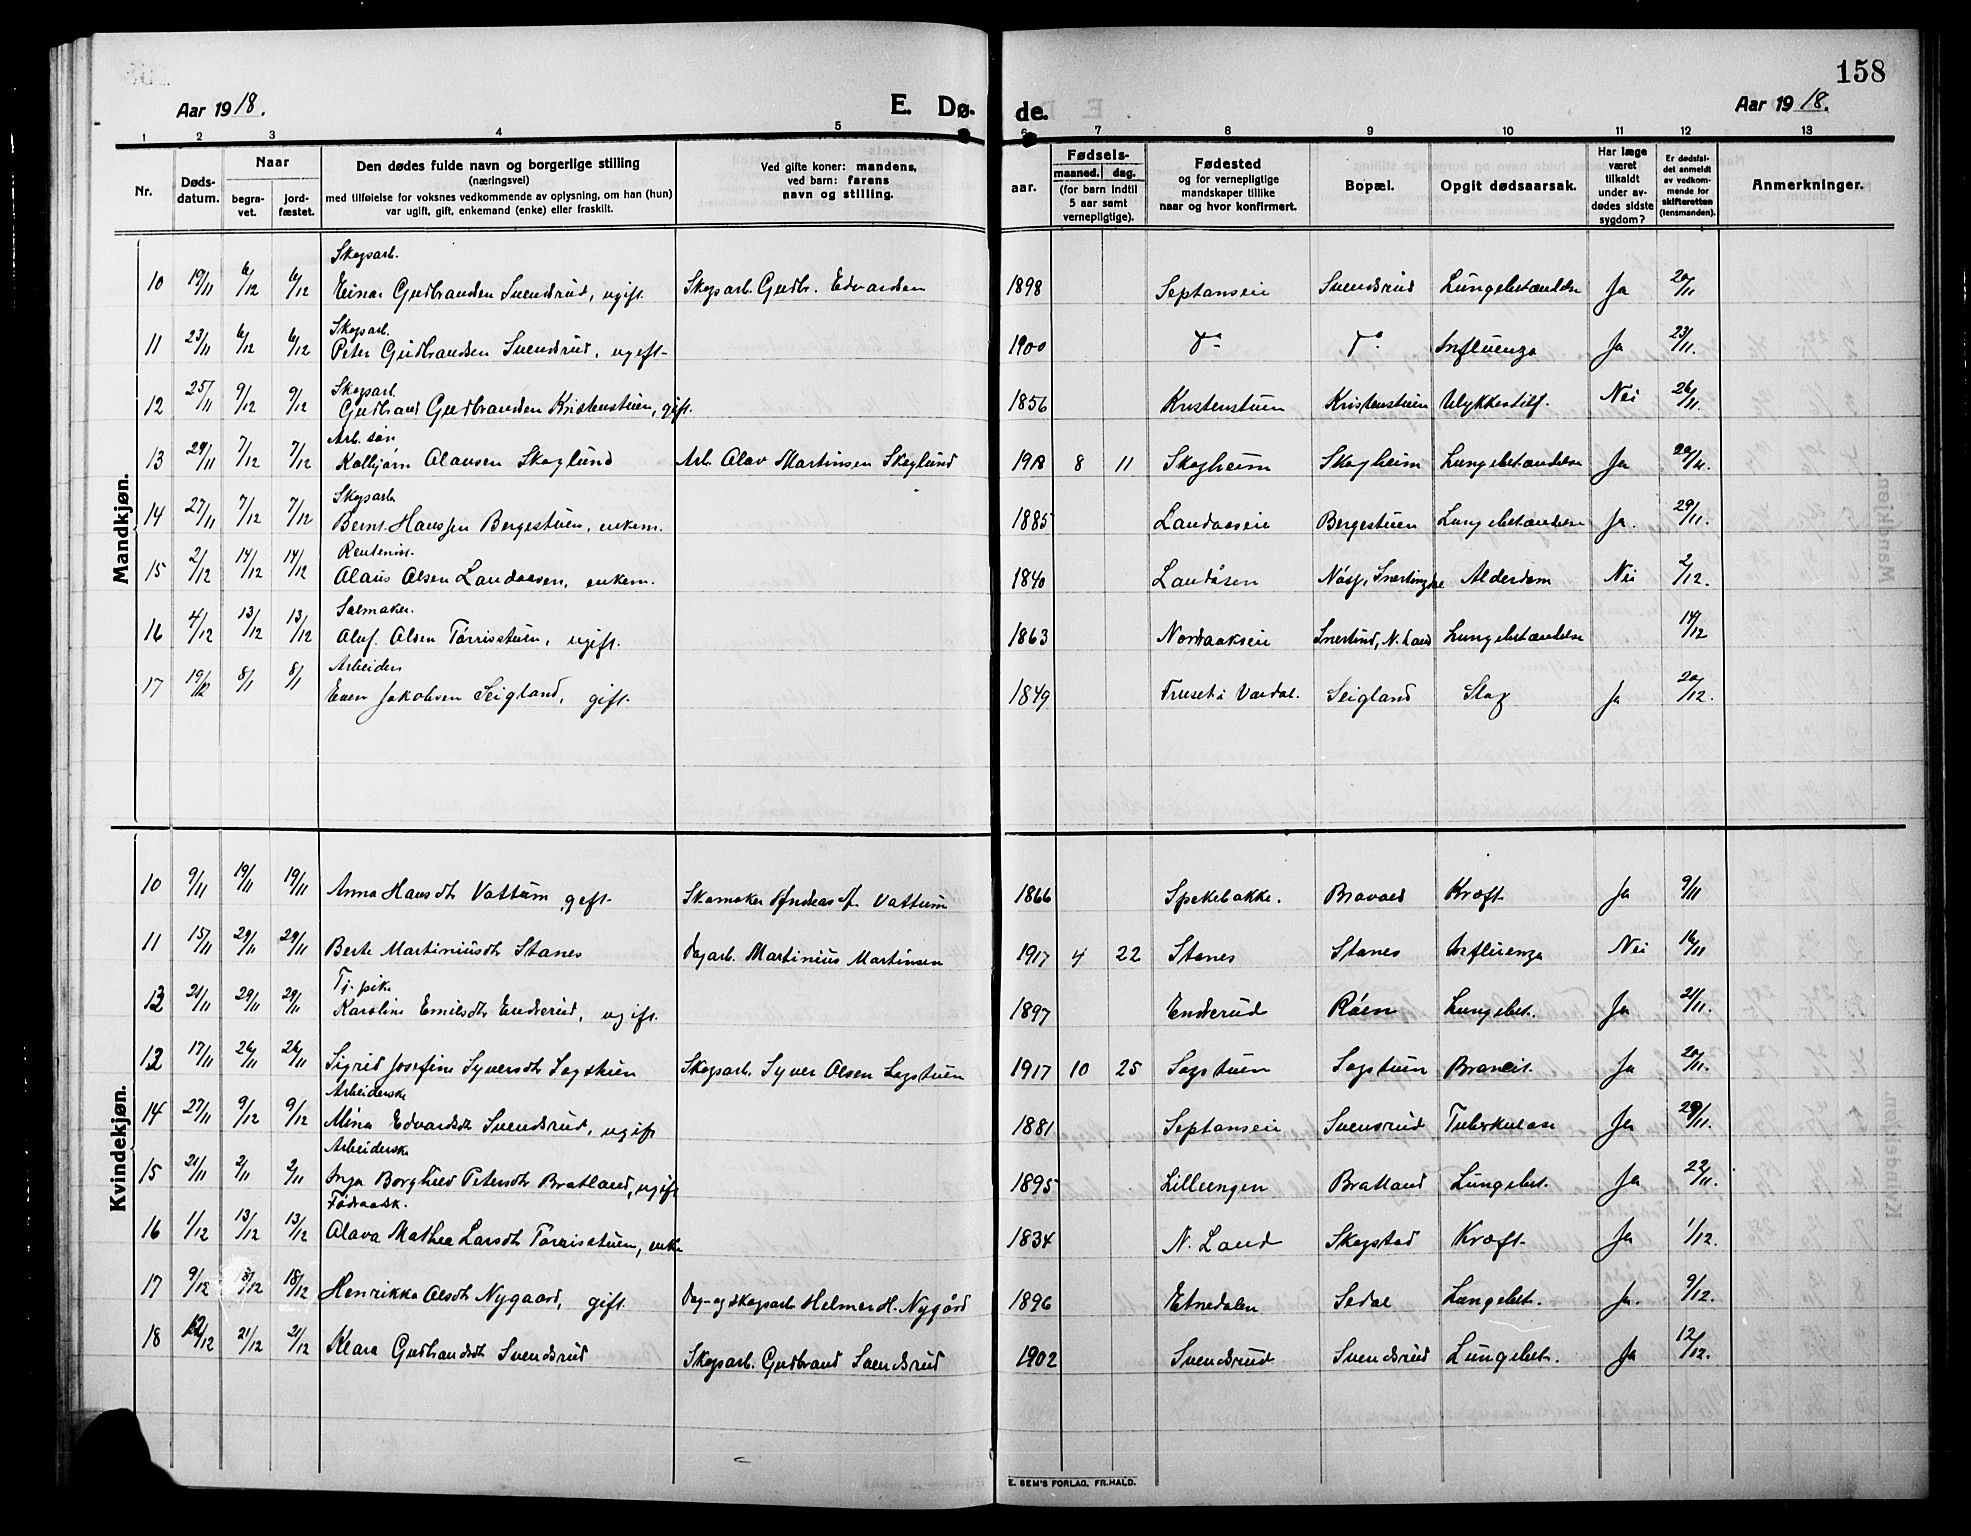 158
Aar 1918.
E. Dø-
de.
Aar 1918.
1 2 3 4 5 6 7 8 9 10 11 12 13
Nr.
Døds-
datum.
Naar
begra-
vet.
jord-
fæstet.
Den dødes fulde navn og borgerlige stilling
(næringsvei)
med tilføielse for voksnes vedkommende av oplysning, om han (hun)
var ugift, gift, enkemand (enke) eller fraskilt.
Ved gifte koner: mandens,
ved barn: farens
navn og stilling.
aar.
Fødsels-
maaned. dag.
(for barn indtil
5 aar samt
vernepligtige).
Fødested
og for vernepligtige
mandskaper tillike
naar og hvor konfirmert.
Bopæl.
Opgit dødsaarsak.
Har læge
været
tilkaldt
under av-
dødes sidste
sygdom?
Er dødsfal-
det anmeldt
av vedkom-
mende for
skifteretten
(lensmanden).
Anmerkninger.
Mandkjøn.
Skogsarb.
10 19/11 6/12 6/12 Einar Gudbrandsen Svendsrud, ugift. Skogsarb. Gudbr. Edvardsen 1898 Septanseie Svendsrud Lungebetændelse Ja 20/11
Skogsarb.
11 23/11 6/12 6/12 Peter Gudbrandsen Svendsrud, ugift 1900 Do Do Influenza Ja 23/11.
Skogsarb.
12 25/11 9/12 9/12 Gudbrand Gudbrandsen Kristenstuen, gift. 1856 Kristenstuen Kristenstuen Ulykkestilf. Nei 26/11.
Arb. søn
13 29/11 7/12 7/12 Kolbjørn Olavsen Skoglund Arb. Olav Martinsen Skoglund 1918 8 11 Skogheim Skogheim Lungebetændelse Ja 29/11.
Skogsarb.
14 27/11 7/12 7/12 Bernt Hanssen Bergestuen, enkem. 1885 Landaaseie Bergestuen Lungebetændelse Ja. 29/11.
Rentenist.
15 2/12 14/12 14/12 Olaus Olsen Landaasen, enkem. 1840 Landåsen Nøss, Snertingdal Alderdom Nei 2/12.
Salmaker.
16 4/12 13/12 13/12 Oluf Olsen Tørrisstuen, ugift. 1863 Nordaakseie Snerlund, N. Land Lungebetændelse 14/12
Arbeider
17 19/12 8/1 8/1 Even Jakobsen Seigland, gift. 1849 Truset i Vardal. Seigland Slag Ja 20/12.
Kvindekjøn.
10 9/11 19/11 19/11 Anna Hansdtr Vattum gift. Skomaker Andreas Vattum 1866 Spekebakke. Kræft. Ja 9/11
11 15/11 29/11 29/11 Berte Martiniusdtr Stanes Dagarb. Martinius Martinsen 1917 4 22 Stanes Stanes Influenza Nei 16/11
Tj. pike
12 21/11 29/11 29/11 Karoline Emilsdtr Enderud, ugift. 1897 Enderud Røen Lungebet. Ja 21/11.
13 17/11 26/11 26/11 Sigrid Josefine Syversdtr Sagstuen Skogsarb. Syver Olsen Sagstuen 1917 10 25 Sagstuen Sagstuen Broncit. Ja 20/11.
Arbeiderske
14 27/11 9/12 9/12 Mina Edvardsdtr Svendsrud, ugift 1881 Septanseie Svensrud Tuberkulose Ja 29/11.
Arbeiderske
15 21/11 2/11 2/11 Inga Borghild Petersdtr Bratland, ugift 1895 Lilleengen Bratland Lungebet. Ja 22/11.
Føderaadsk.
16 1/12 13/12 13/12 Olava Mathea Larsdtr Tørrisstuen, enke 1834 N. Land Skogstad Kræft. Ja 1/12.
17 9/12 18/12 18/12 Henrikka Olsdtr Nygaard, gift. Dag- og skogsarb. Helmer H. Nygård 1896 Etnedalen Sedal Lungebet. Ja. 9/12.
18 12/12 21/12 21/12 Klara Gudbrandsdtr Svendsrud Skogsarb. Gudbrand Svendsrud 1902 Svendsrud Svendsrud Lungebet. Ja 12/12.
E. SEM'S FORLAG, FR.HALD.